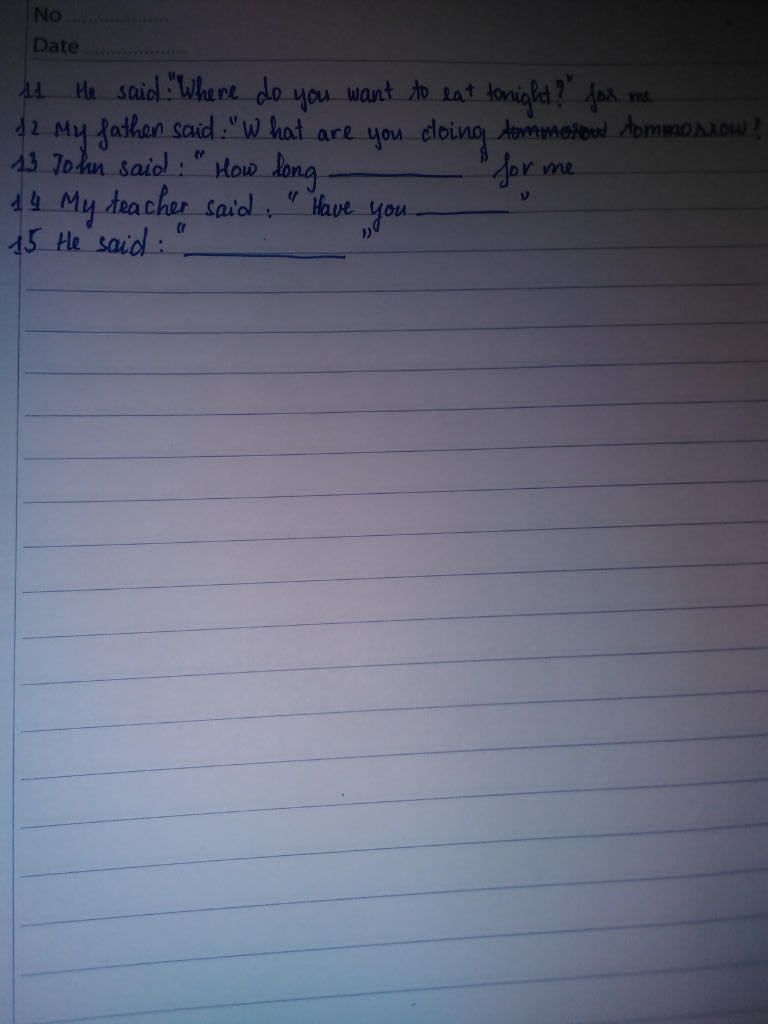 No ....................
Date ....................
11 He said: "Where do you want to eat tonight?" for me
12 My father said: "What are you doing tommorow tommorrow?
13 John said: " How long __________ " for me
14 My teacher said: " Have you __________ "
15 He said: " __________ "